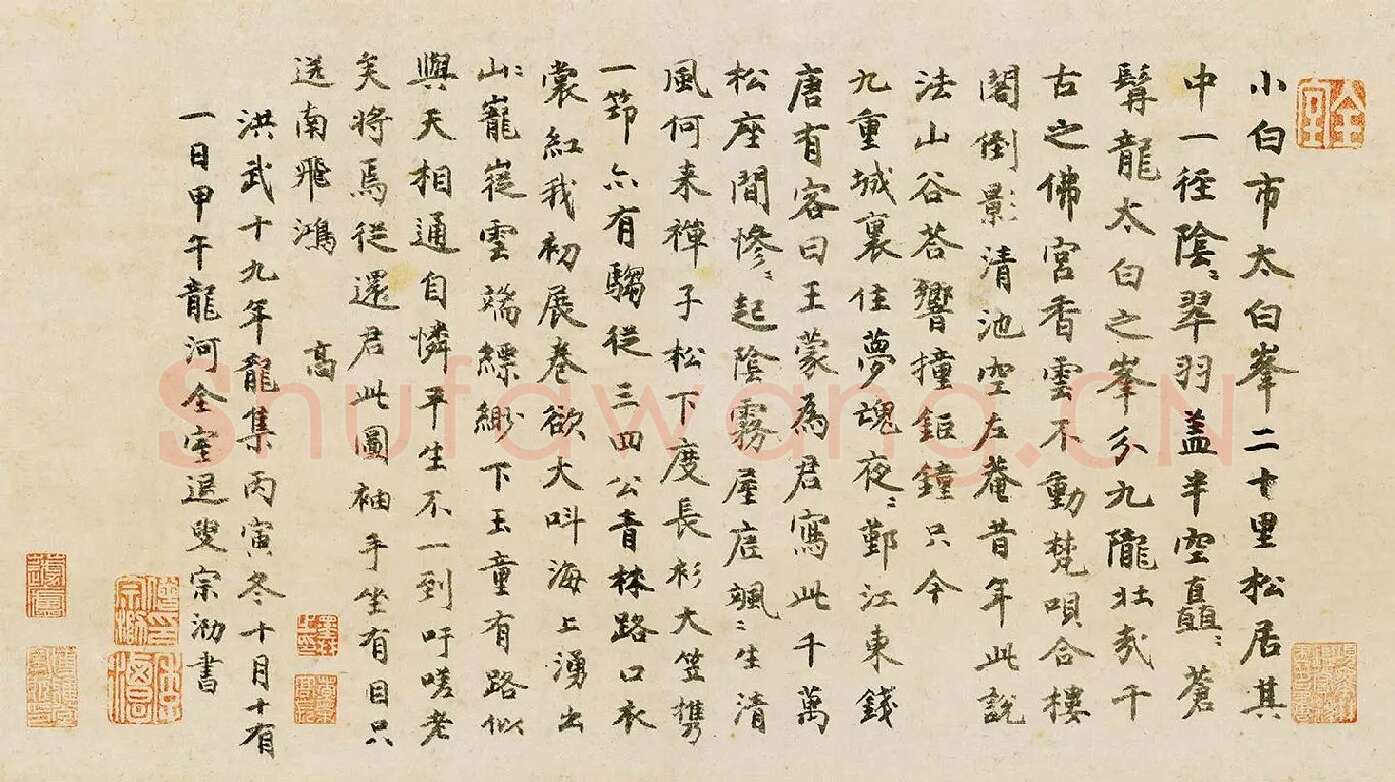 小白市太白峯二十里松居其
中一徑陰〻翠羽蓋半空矗〻蒼
髯龍太白之峯分九隴壯哉千
古之佛宮香雲不動梵唄合樓
閣倒影清池空左菴昔年此說
法山谷荅響撞鉅鐘只今
九重城裏住夢魂夜〻鄞江東錢
唐有客曰王蒙為君寫此千萬
松座間慘〻起陰霧屋底颯〻生清
風何来禪子松下度長衫大笠携
一笻亦有騶從三四公青林路口衣
裳紅我初展卷欲大呌海上湧出
山〻巃嵸雲端縹緲下玉童有路似
與天相通自憐平生不一到吁嗟老
矣將焉從還君此圖袖手坐有目只
送南飛鴻 高
洪武十九年龍集丙寅冬十月十有
一日甲午龍河全室退叟宗泐書
全室
Shufawang.CN